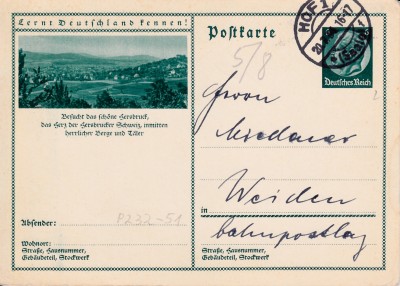 Lernt Deutschland kennen!
Besucht das schöne Hersbruck,
das Herz der Hersbrucker Schweiz, inmitten
herrlicher Berge und Täler
Absender:
P232-51
Wohnort:
Straße, Hausnummer,
Gebäudeteil, Stockwerk
Postkarte
5/8
HOF 1
(Saale)
Deutsches Reich
Herrn
Weiden
in
bahnpostlag
Straße, Hausnummer,
Gebäudeteil, Stockwerk